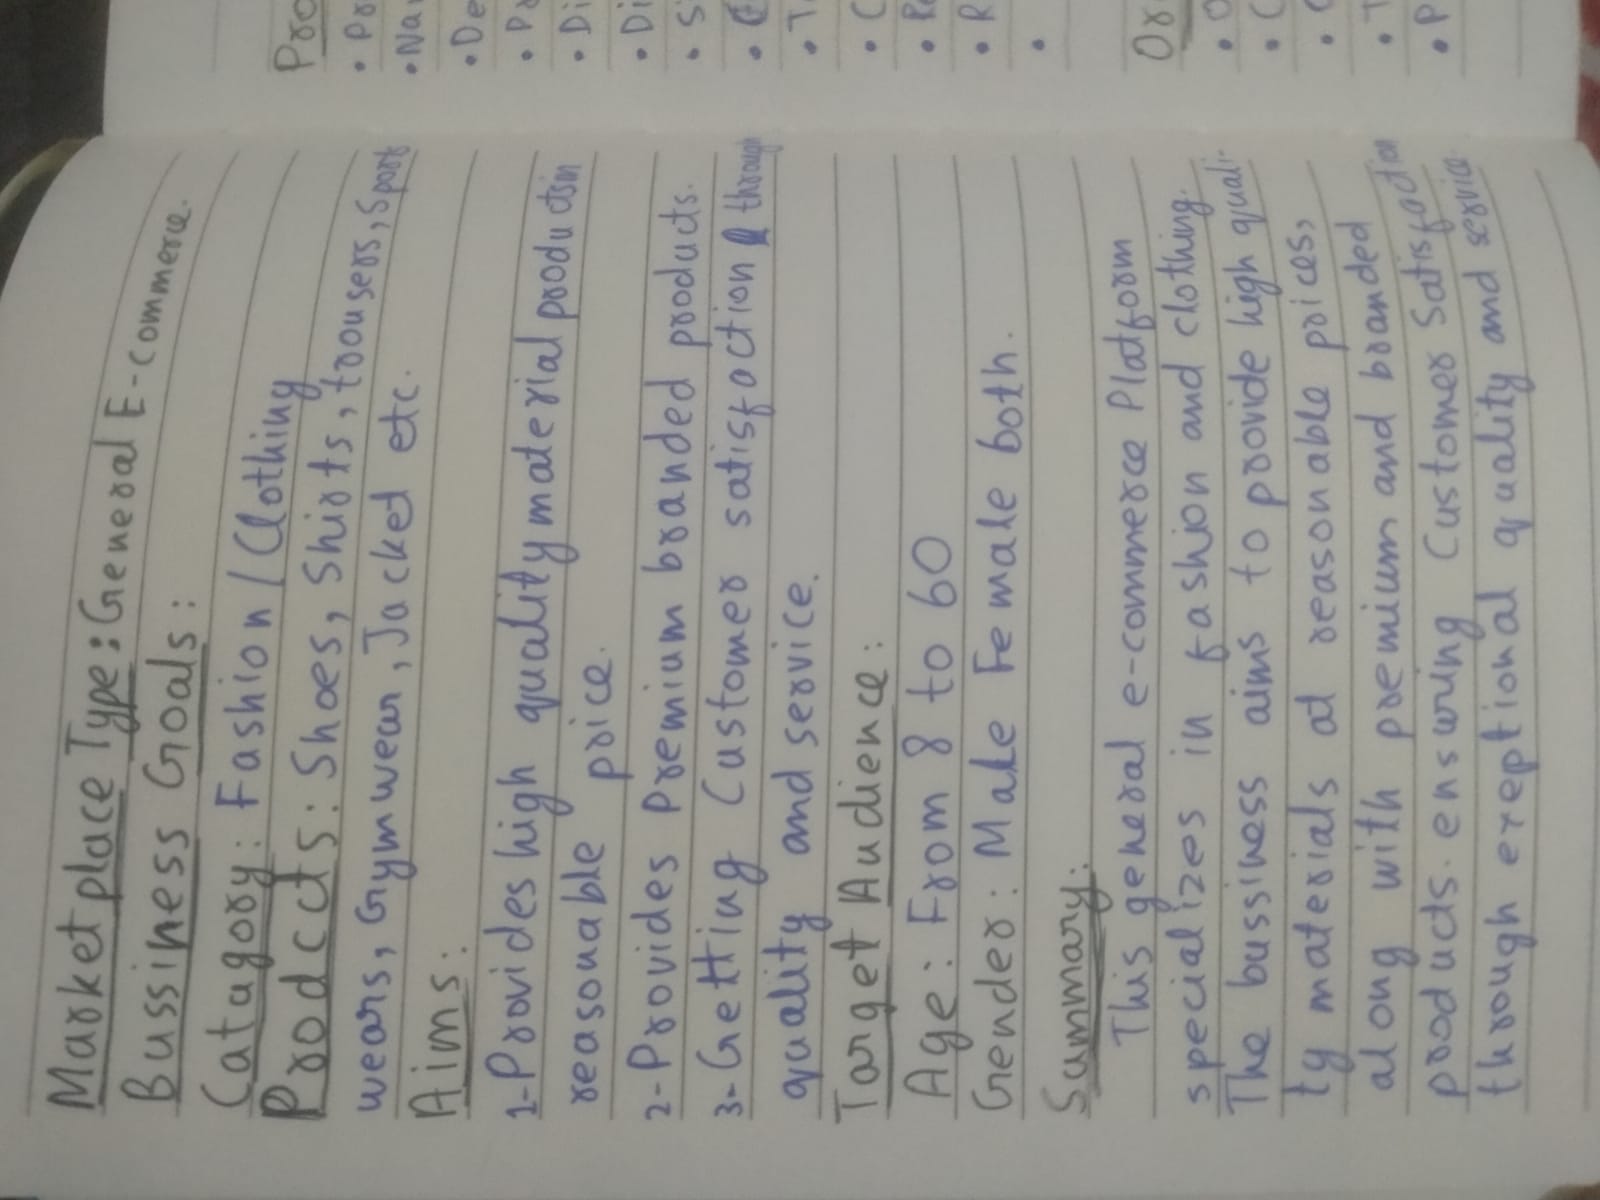 Market place Type: General E-commerce.
Bussiness Goals:
Catagory: Fashion / Clothing
Prodcts: Shoes, Shirts, trousers, sport
wears, Gym wear, Jacket etc.
Aims:
1-Provides high quality material products in
reasonable price.
2-Provides Premium branded products.
3-Getting Customer satisfaction through
quality and service.
Target Audience:
Age: From 8 to 60
Gender: Male Female both.
Summary:
This general e-commerce Platform
specializes in fashion and clothing.
The bussiness aims to provide high quali-
ty materials at reasonable prices,
along with premium and branded
products. ensuring Customer Satisfaction
through exeptional quality and service.
Pro
• Pr
• Na
• De
• Di
• Di
• S
• T
• C
• R
Or
• O
• C
• T
• P